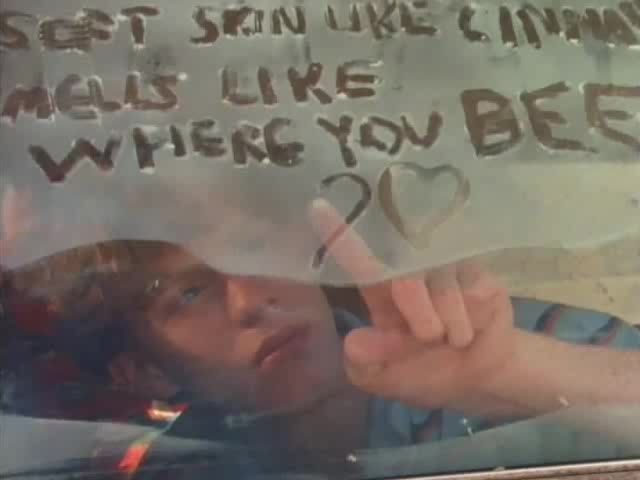 SOFT SKIN LIKE CINNA
MELLS LIKE
WHERE YOU BEE
? ♡